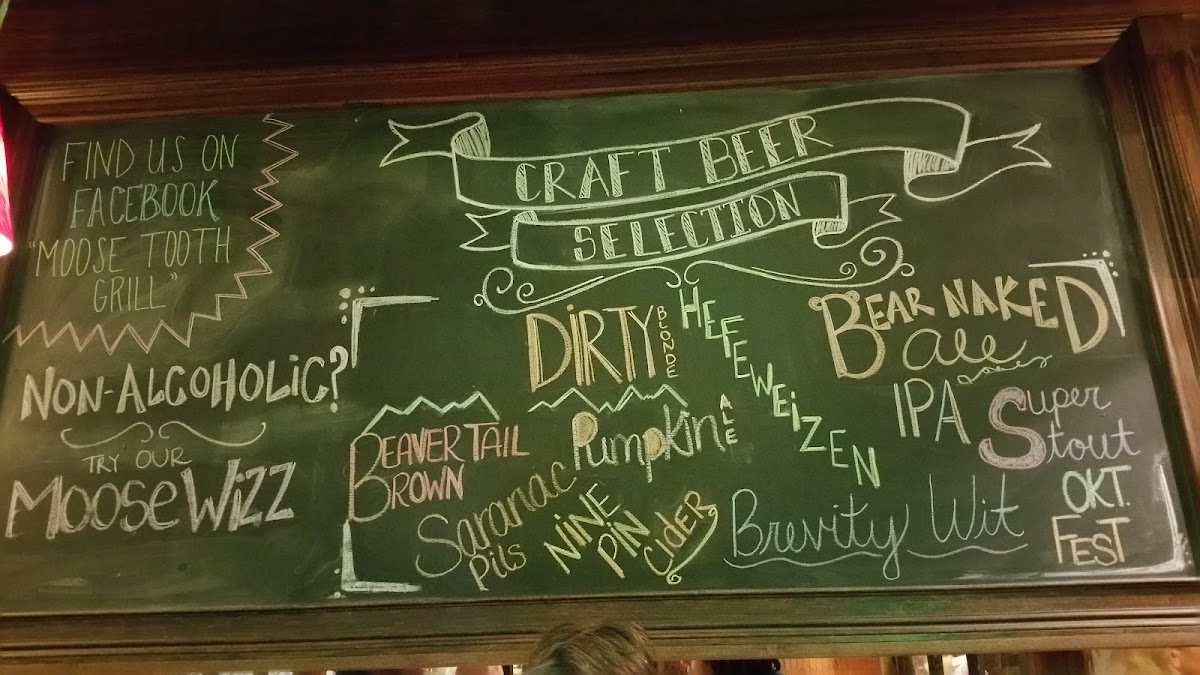 FIND US ON
FACEBOOK
"MOOSE TOOTH
GRILL"
NON-ALCOHOLIC?
TRY OUR
MOOSE WIZZ
CRAFT BEER
SELECTION
DIRTY BLONDE
HEFEWEIZEN
BEAR NAKED
ale
BEAVERTAIL
BROWN
Pumpkin ALE
IPA
Super
Stout
Saranac
Pils
NINE
PIN
CIDER
Brevity Wit
OKT.
FEST